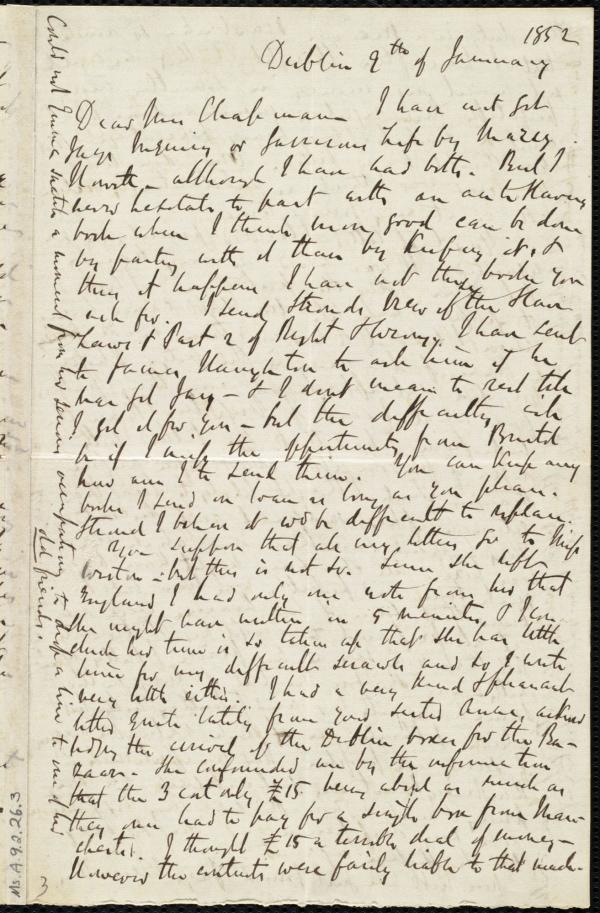 1852
Dublin 9th of January
Dear Mrs Chapman I have not got
Jay's Inquiry or Garrison's Life by Mary
Howitt - although I have had both. But I
never hesitate to part with an anti slavery
book when I think more good can be done
by parting with it than by keeping it, &
thus it happens I have not the books you
ask for. I send Stroud's View of the Slave
Laws & Part 2 of Right & Wrong. I have sent
to James Haughton to ask him if he
has got Jay - & I don't mean to rest till
I get it for you - but the difficulty will
be if I miss the opportunity from Bristol
how am I to send them. You can keep any
books I send on loan as long as you please.
Stroud I believe it wd be difficult to replace.
You suppose that all my letters go to Miss
Weston - but this is not so. Since she left
England I had only one note from her that
she might have written in 5 minutes & I con
clude her time is so taken up that she has little
time for my difficult scrawls and so I write
very little either. I had a very kind & pleasant
letter quite lately from your sister Anne,
the arrival of the Dublin boxes for the Ba-
zaar. She confounded me by the information
that the 3 cost only £15 being about as much as
they once had to pay for a single box from Man-
chester. I thought £15 a terrible deal of money -
However the contents were fairly liable to that much.
Could not Emma snatch a moment from her serious occupations to drop a line to one of her
old friends.
Ms.A.9.2.26.3
3